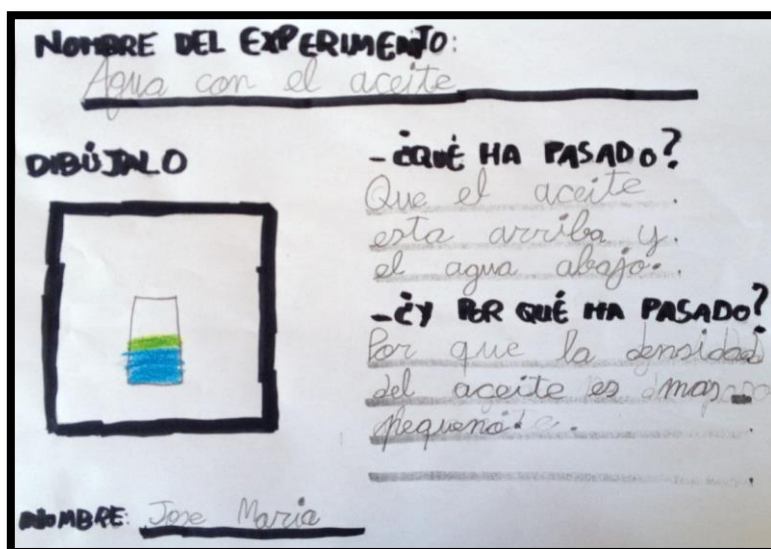 NOMBRE DEL EXPERIMENTO:
Agua con el aceite
DIBÚJALO
-¿QUÉ HA PASADO?
Que el aceite.
esta arriba y.
el agua abajo..
-¿Y POR QUÉ HA PASADO?
Por que la densidad
del aceite es mas
pequeña.
NOMBRE: Jose Maria